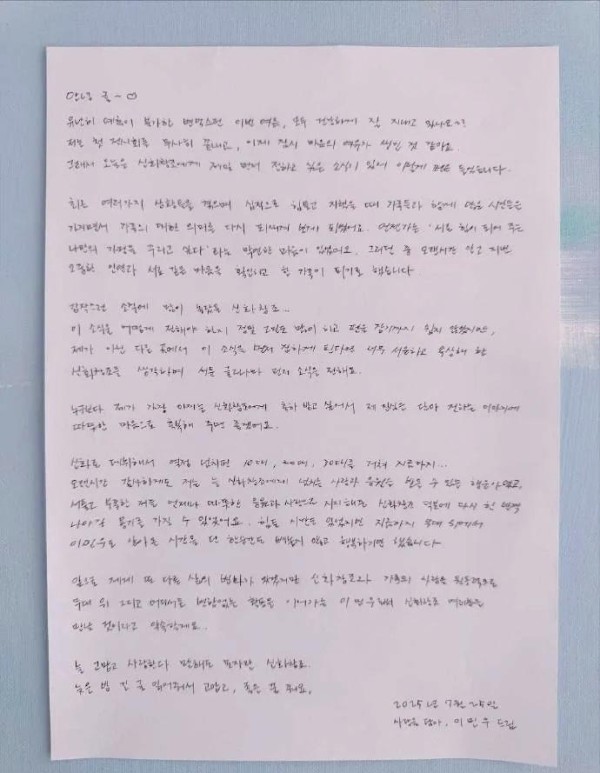 안녕 귤~♡
유난히 더욱이 불가한 변덕스런 이번 여름, 모두 건강하게 잘 지내고 있나요?
저는 첫 전시회를 무사히 끝내고, 이제 잠시 마음의 여유가 생긴 것 같아요.
그래서 오늘은 신화창조에게 제일 먼저 전하고 싶은 소식이 있어 이렇게 펜을 들었습니다.
최근 여러가지 상황들을 겪으며 심적으로 힘들고 지쳤을 때 가족들과 함께 많은 시간을
가지면서 가족의 대한 의미를 다시 되새겨 보게 되었어요. 언젠가는 '서로 힘이 되어 주는
나만의 가정을 꾸리고 싶다' 라는 막연한 마음이 있었어요. 그러던 중 오랫시간 알고 지낸
소중한 인연과 서로 같은 마음을 확인하고 한 가족이 되기로 했습니다.
갑작스런 소식에 많이 놀랐을 신화창조..
이 소식을 어떻게 전해야 하지 정말 고민도 많이 하고 펜을 잡기까지 쉽지 않았지만,
제가 아닌 다른 곳에서 이 소식을 먼저 접하게 된다면 너무 서운하고 속상해 할
신화창조를 생각하며 서툰 글로나마 먼저 소식을 전해요.
누구보다 제가 가장 아끼는 신화창조에게 축하 받고 싶어서 제 진심을 담아 전하는 이야기에
따뜻한 마음으로 축복해 주면 좋겠어요.
신화로 데뷔해서 열정 넘치던 10대, 20대, 30대를 거쳐 지금까지...
오랜시간 감사하게도 저는 늘 신화창조에게 넘치는 사랑과 응원을 받을 수 있는 행운아였고,
서툴고 부족한 저를 언제나 따뜻한 응원과 사랑으로 지지해준 신화창조 덕분에 다시 한 번
나아갈 용기를 가질 수 있었어요. 힘든 시간도 있었지만 지금까지
이민우로 살아온 시간을 단 한순간도 빼놓지 않고 행복하기만 했습니다.
앞으로 제게 또 다른 삶의 변화가 있겠지만 신화창조와 가족의 사랑을 원동력으로
무대 위 그리고 어디서든 변함없는 활동을 이어가는 이민우로 신화창조 여러분을
만날 것이라고 약속할게요..
늘 고맙고 사랑한다 말해도 모자란 신화창조.
늦은 밤 긴 글 읽어줘서 고맙고, 좋은 꿈 꿔요.
2025년 7월 25일
사랑을 담아, 이민우 드림